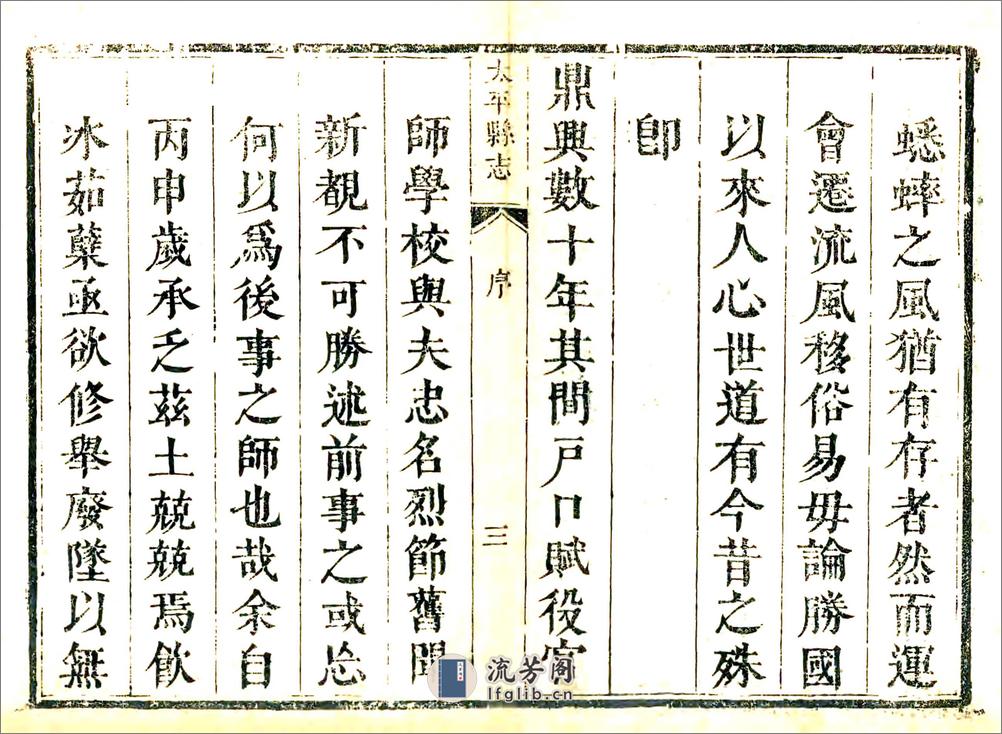 蟋蟀之風猶有存者然而運
會遷流風移俗易毋論勝國
以來人心世道有今昔之殊
卽
鼎興數十年其間戸口賦役官
太平縣志
序
三
師學校與夫忠名烈節舊聞
新覩不可勝述前事之或忘
何以爲後事之師也哉余自
丙申歲承乏茲土兢兢焉飮
氷茹蘖亟欲修舉廢墜以無
流芳阁
lfglib.cn